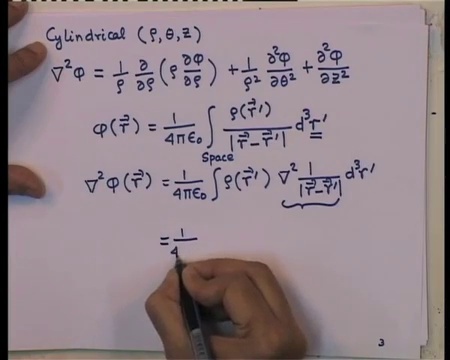 Cylindrical (ρ, θ, z)
∇²φ = 1/ρ ∂/∂ρ (ρ ∂φ/∂ρ) + 1/ρ² ∂²φ/∂θ² + ∂²φ/∂z²
φ(r⃗) = 1/4πε₀ ∫ ρ(r⃗')/|r⃗-r⃗'| d³r'
Space
∇²φ(r⃗) = 1/4πε₀ ∫ ρ(r⃗') ∇² 1/|r⃗-r⃗'| d³r'
= 1/4
3